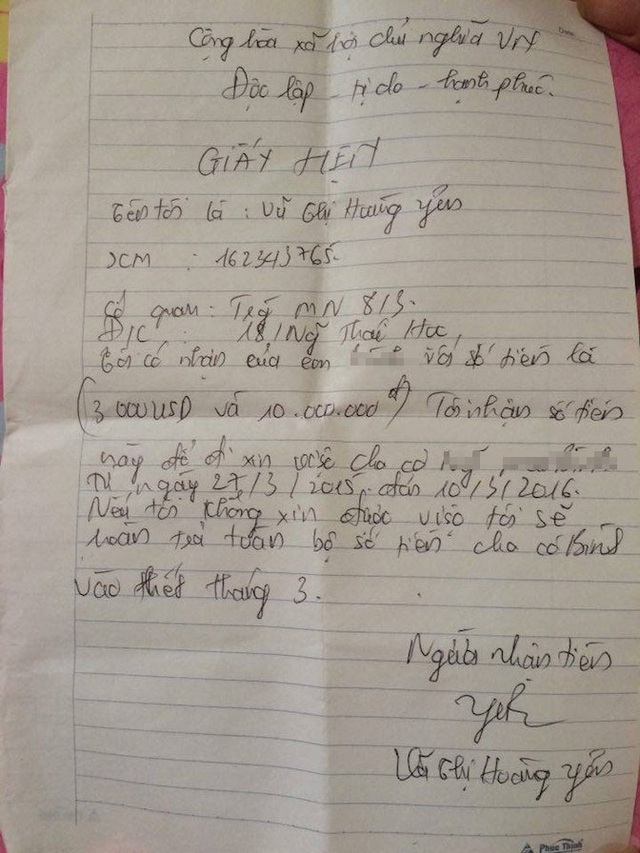 Cộng hòa xã hội chủ nghĩa VN
Độc lập - tự do - hạnh phúc.
GIẤY HẸN
tên tôi là : Vũ Thị Hoàng Yến
SCM : 162343765.
Cơ quan : Trg MN 8/3.
Đ/C : 18/Ngỹ Thái Học
tôi có nhận của em với số tiền là
(3 000 USD và 10.000.000đ) Tôi nhận số tiền
này để đi xin việc cho cô
Từ ngày 27/3/2015 đến 10/3/2016.
Nếu tôi không xin được việc tôi sẽ
hoàn trả toàn bộ số tiền cho cô Bình
vào hết tháng 3.
Người nhận tiền
Yến
Vũ Thị Hoàng Yến
Phuc Thinh